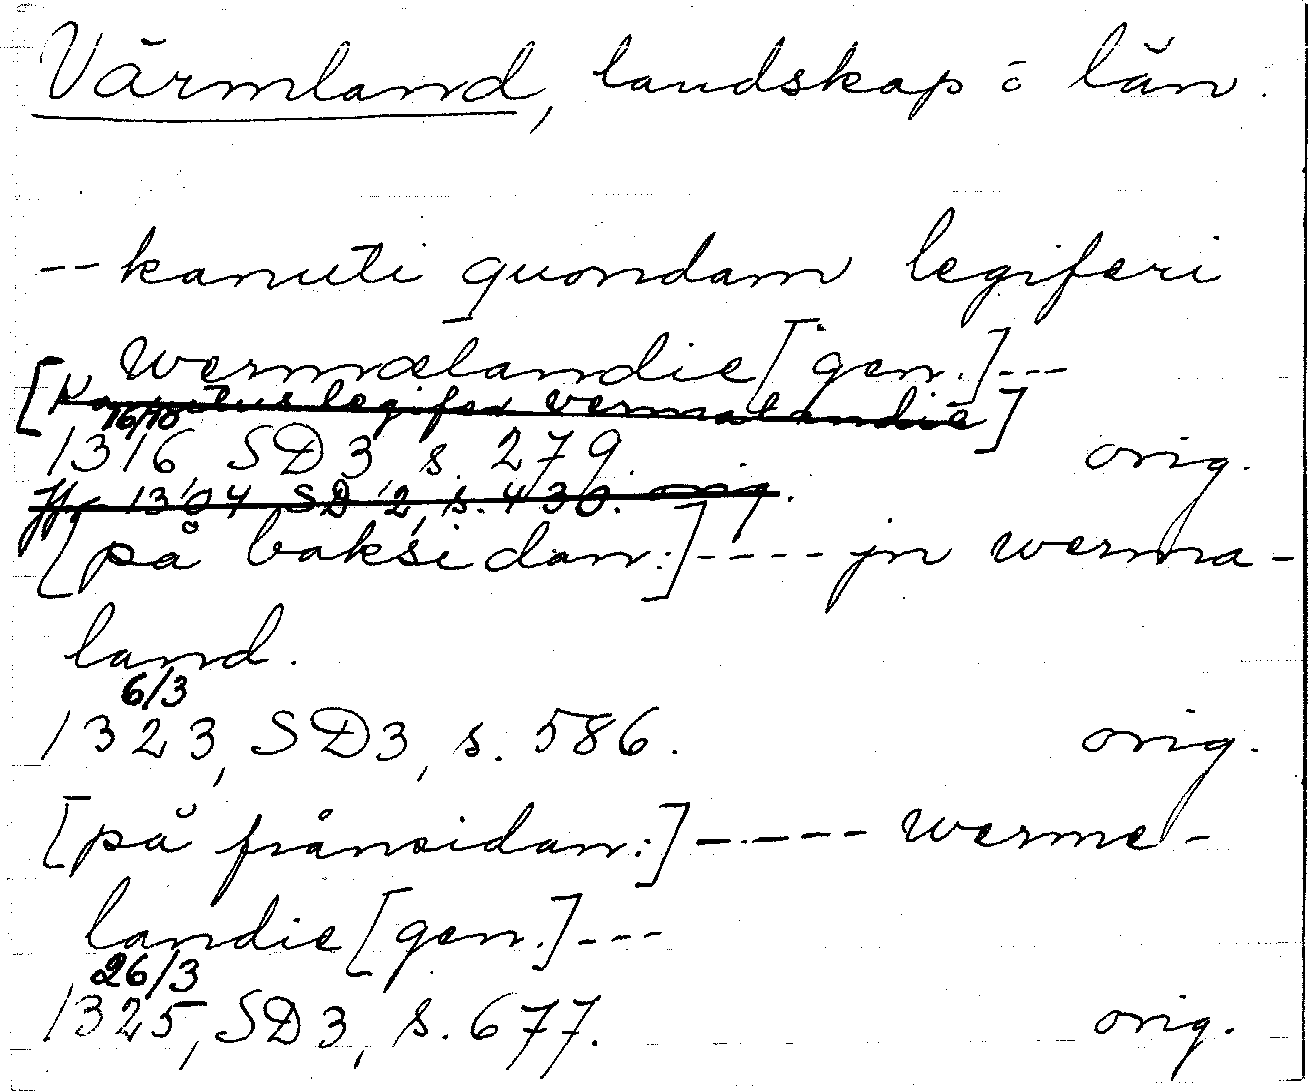 Värmland, landskap o län.
-- kanuti quondam legiferi
wermælandie [gen.] ---
[Kanutus legifer vermalandie]
16/10
1316 SD3 s. 279. orig.
Jfr 1304 SD 2, s. 430. orig.
[på baksidan:] ---- jn werma-
land.
6/3
1323, SD3, s. 586. orig.
[på frånsidan:] ----- werme-
landie [gen.] ---
26/3
1325, SD3, s. 677. orig.